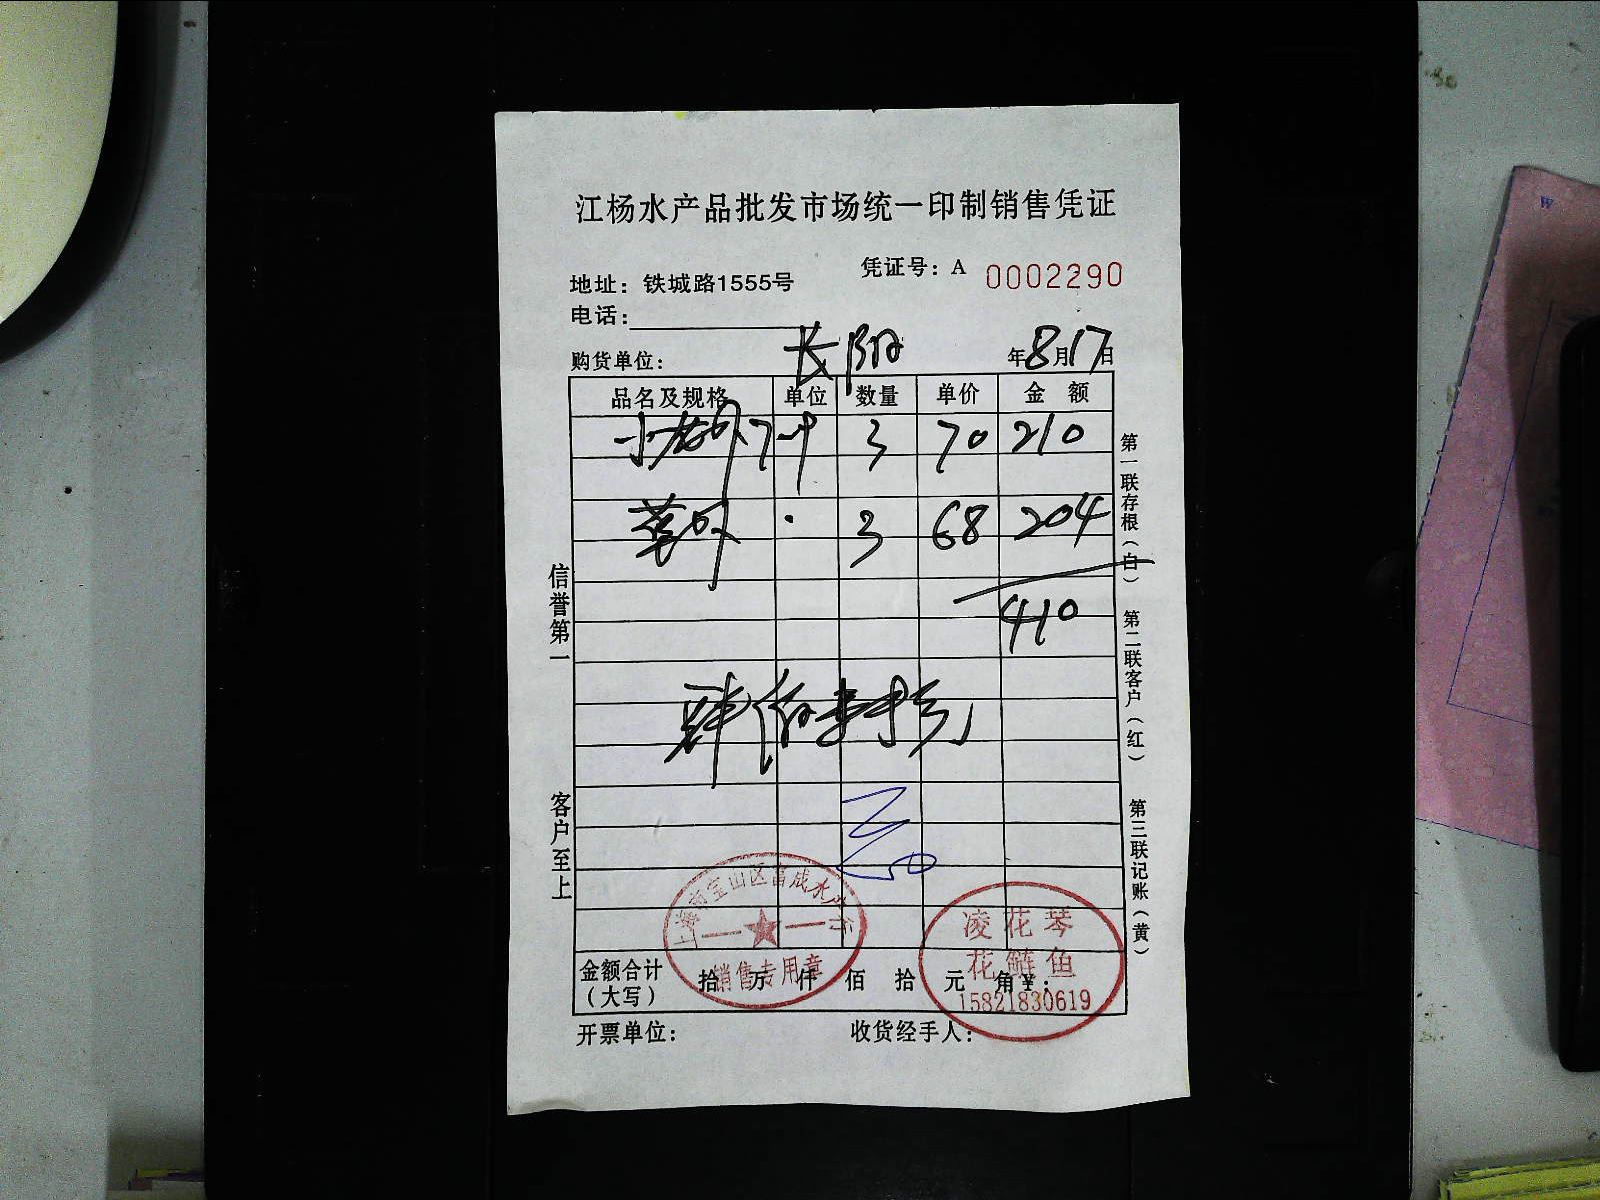 江杨水产品批发市场统一印制销售凭证
凭证号：A 0002290
地址：铁城路1555号
电话：
购货单位： 长阳 年8月17日
品名及规格 单位 数量 单价 金额
小 3 70 210
3 68 204
410
肆佰壹拾元
信誉第一
客户至上
第一联存根（白）
第二联客户（红）
第三联记账（黄）
上海市宝山区富成水产行
销售专用章
凌花琴
花鲢鱼
15821830619
金额合计（大写） 拾 万 仟 佰 拾 元 角 ¥：
开票单位： 收货经手人：